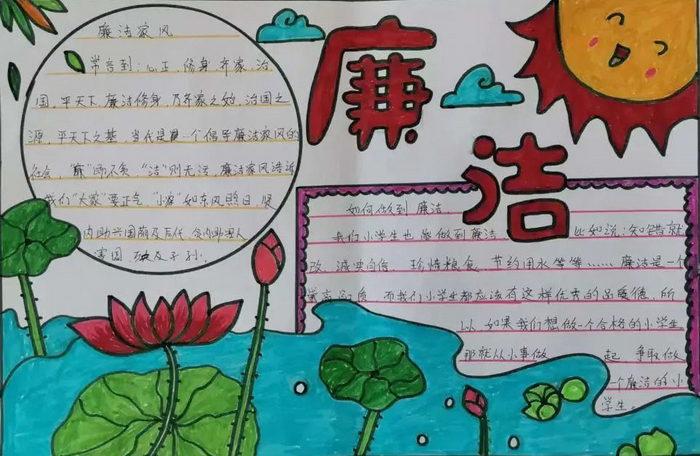 廉洁
廉洁家风
常言到:心正、修身、齐家、治
国、平天下、廉洁修身,乃齐家之始,治国之
源,平天下之基,当代是一个倡导廉洁家风的
社会,"廉"即不贪,"洁"则无污,廉洁家风浩浩
我们"大家"要正气"小家"如东风照日
内助兴国荫及后代,贪内助
害国,殃及子孙。
如何做到廉洁
我们小学生也能做到廉洁 比如说:知错就
改、诚实自信、珍惜粮食、节约用水等等……廉洁是一个
而我们小学生都应该有这样优秀的品德,所
以,如果我们想做一个合格的小学生
那就从小事做 起,争取做
一个廉洁的小
学生。